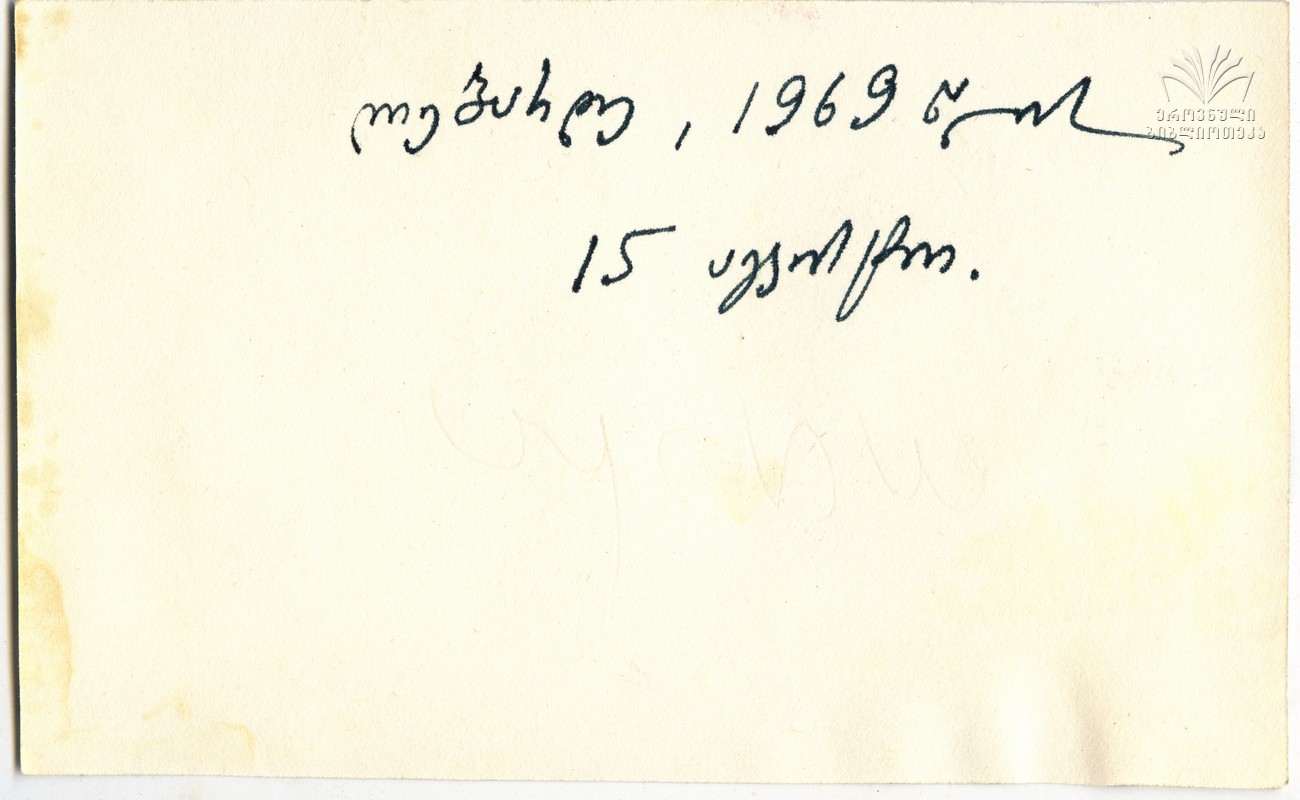 ლებარდე, 1969 წლის
15 აგვისტო.
ეროვნული
ბიბლიოთეკა